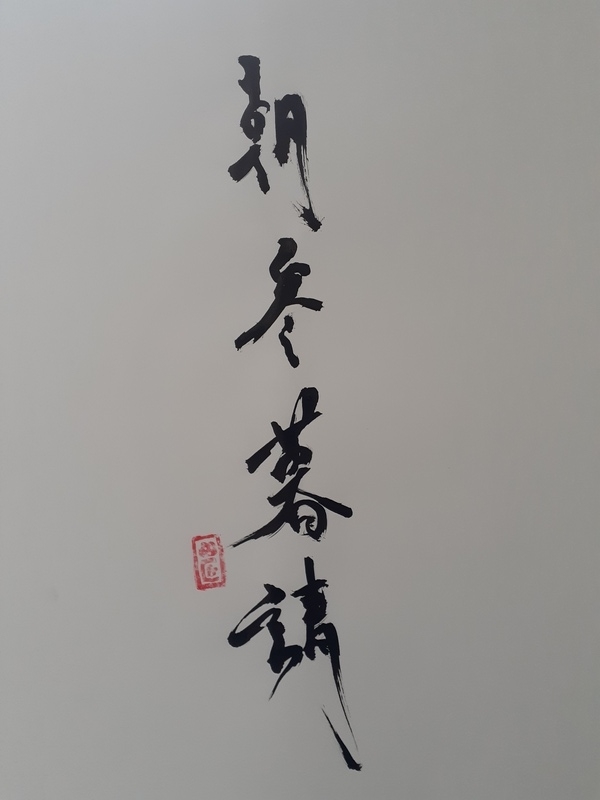 朝参暮請